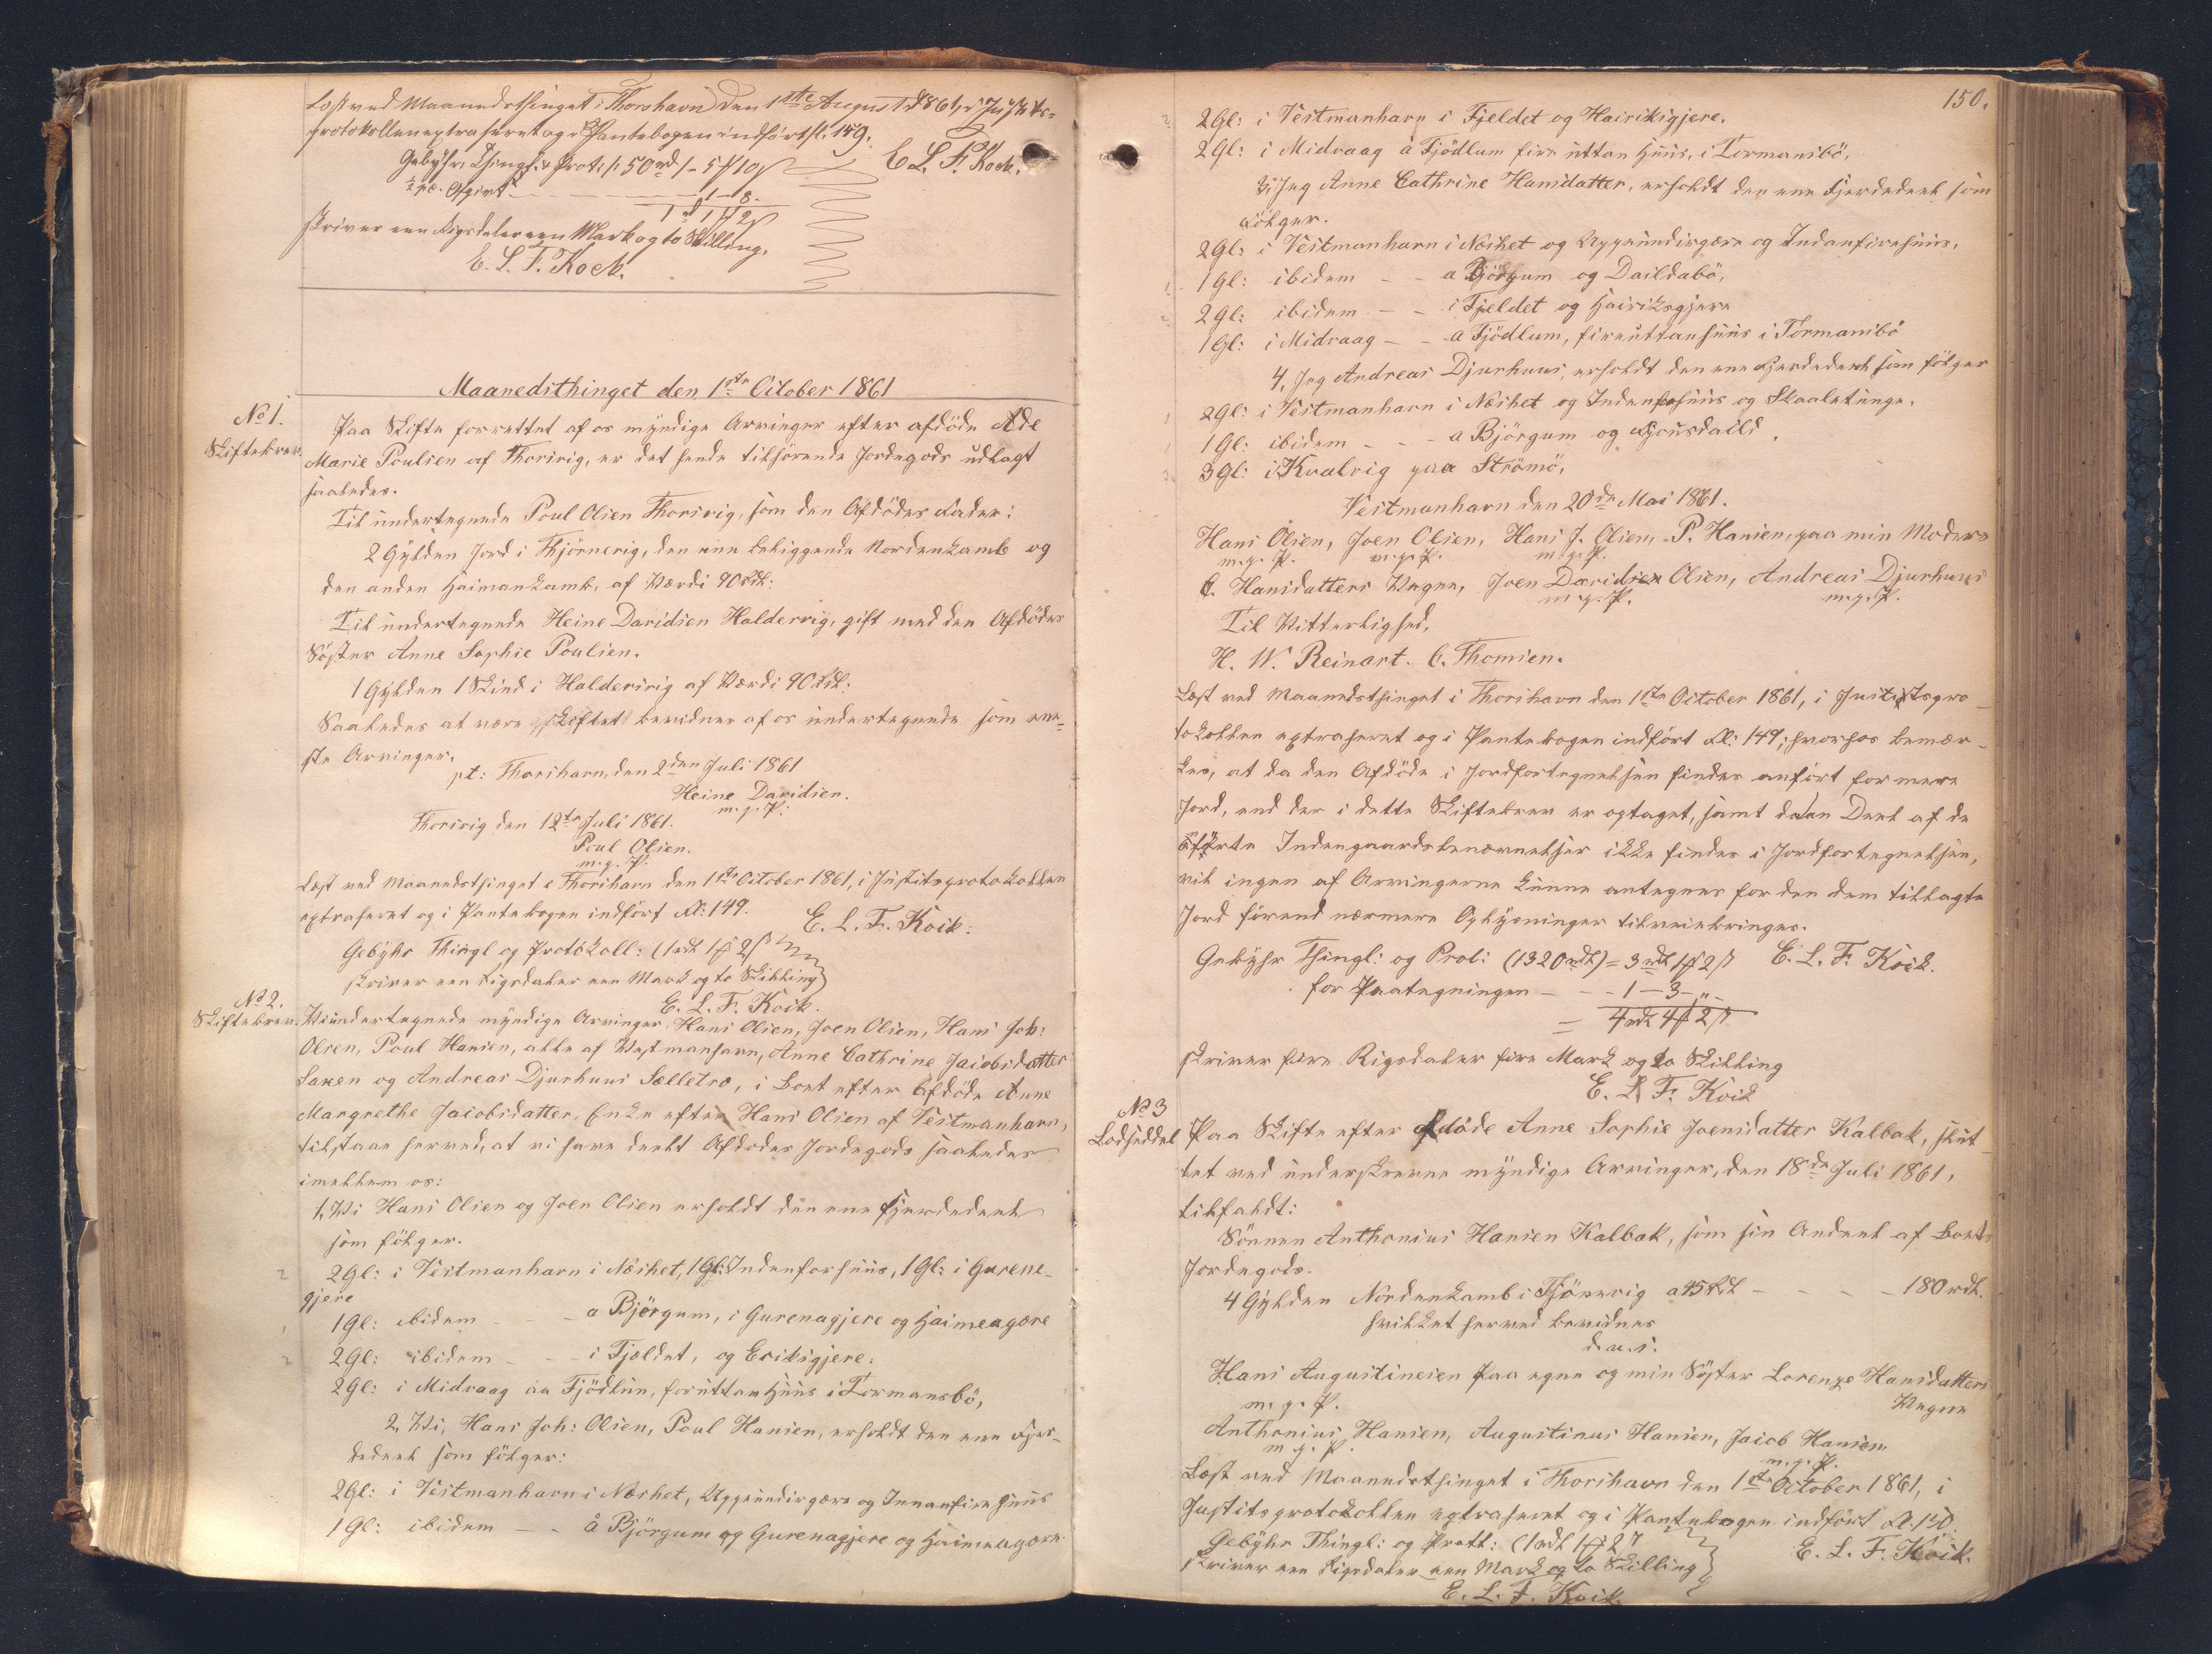 Læst ved Maanedsthinget i Thorshavn den 1ste August 1861, i Justits-
protokollen extraheret og i Pantebogen indført fl. 149.
Gebyhr Thingl. & Prot: /: 50 rd /- 5 ₰ 10 ß
E. L. F. Koch.
½ pc. Afgivt - - 1 - 8 -
1 rd 1 ₰ 2 ß
skriver een Rigsdaler een Mark og to Skilling.
E. L. F. Koch.
Maanedsthinget den 1ste October 1861
No 1.
Skiftebrev.
Paa Skifte forrettet af os myndige Arvinger efter afdöde Ade
Marie Poulsen af Thorsvig, er det hende tilhörende Jordegods udlagt
saaledes.
Til undertegnede Poul Olsen Thorsvig, som den Afdödes Fader:
2 Gylden Jord i Thjörnevig, den ene beliggende Nordenkamb og
den anden Haimankamb, af Værdi 90 Rdl:
Til undertegnede Heine Davidsen Haldervig, gift med den Afdödes
Söster Anne Sophie Poulsen.
1 Gylden 1 Skind i Haldersvig af Værdi 90 Rdl:
Saaledes at være skiftet bevidnes af os undertegnede som ene-
ste Arvinger.
pt: Thorshavn, den 2den Juli 1861
Heine Davidsen.
m. p. P.
Thorsvig den 12te Juli 1861.
Poul Olsen.
m. p. P.
Læst ved Maanedsthinget i Thorshavn den 1ste October 1861, i Justitsprotokollen
extraheret og i Pantebogen indfört Fl: 149.
E. L. F. Koch.
Gebyhr Thingl og Protokoll: (1 rdl 1 ₰ 2 ß
skriver een Rigsdaler een Mark og to Skilling)
E. L. F. Koch.
No 2.
Skiftebrev.
Vi undertegnede myndige Arvinger, Hans Olsen, Joen Olsen, Hans Joh:
Olsen, Poul Hansen, alle af Vestmanhavn, Anne Cathrine Jacobsdatter
Saxen og Andreas Djurhuus Sælletræ, i Boet efter Afdöde Anne
Margrethe Jacobsdatter, Enke efter Hans Olsen af Vestmanhavn,
tilstaae herved, at vi have deelt Afdödes Jordegods saaledes
imellem os:
1, Vi Hans Olsen og Joen Olsen erholdt den ene Fjerdedeel
som fölger.
2 Gl: i Vestmanhavn i Næshet, 1 Gl: Indenforhuus, 1 Gl: i Gurene-
gjere
1 Gl: ibidem - - a Björgum, i Gurenagjere og Haimeagære
2 Gl: ibidem - - i Fjeldet, og Eriksgjere.
2 Gl: i Midvaag aa Fjödlun, foruttan Huus i Tormansbö,
2, Vi, Hans Joh: Olsen, Poul Hansen, erholdt den ene Fjer-
dedeel som fölger:
2 Gl: i Vestmanhavn i Næshet, Uppeundirgære og Innanfirehuus
1 Gl: ibidem - - å Björgum og Gurenagjere og Haimeagære
150.
2 Gl: i Vestmanhavn i Fjeldet og Hairiksgjere.
2 Gl: i Midvaag å Fjödlum fire uttan Huus, i Tormansbö,
3, Jeg Anne Cathrine Hansdatter, erholdt den ene Fjerdedeel som
fölger.
2 Gl: i Vestmanhavn i Næshet og Uppeundirgære og Indanfirehuus,
1 Gl: ibidem - - a Björgum og Daildabö,
2 Gl: ibidem - - i Fjeldet og Hairiksgjere
1 Gl: i Midvaag - - a Fjödlum, fireuttanhuus i Tormansbö
4, Jeg Andreas Djurhuus, erholdt den ene Fjerdedeel som fölger
2 Gl: i Vestmanhavn i Næshet og Indenforhuus og Skaaletunge.
1 Gl: ibidem - - - a Björgum og
3 Gl: i Kvalvig paa Strömö.
Vestmanhavn den 20de Mai 1861.
Hans Olsen, Joen Olsen, Hans J. Olsen, P. Hansen, paa min Moders
m. p. P. m. p. P. m. p. P.
C. Hansdatters Vegne, Joen Davidsen Olsen, Andreas Djurhuus
m. p. P. m. p. P.
Til Vitterlighed,
H. W. Reinart. C. Thomsen.
Læst ved Maanedsthinget i Thorshavn den 1ste October 1861, i Justitspro-
tokollen extraheret og i Pantebogen indfört Fl: 149, hvorhos bemær-
kes, at da den Afdöde i Jordfortegnelsen findes anfört for mere
Jord, end der i dette Skiftebrev er optaget, samt da en Deel af de
Indengaardsbenævnelser ikke findes i Jordfortegnelsen,
vil ingen af Arvingerne kunne antegnes for den dem tillagte
Jord förend nærmere Oplysninger tilveiebringes.
Gebyhr Thingl: og Prot: (1320 rdl) = 3 rdl 1 ₰ 2 ß E. L. F. Koch.
for Paategningen - - - 1 - 3 - „ -
= 4 rdl 4 ₰ 2 ß
skriver fire Rigsdaler fire Mark og to Skilling
E. L. F. Koch
No 3
Lodseddel
Paa Skifte efter afdöde Anne Sophie Joensdatter Kalbak, slut-
tet ved underskrevne myndige Arvinger, den 18de Juli 1861,
tilfaldt:
Sönnen Anthonius Hansen Kalbak, som sin Andeel af Boets
Jordegods.
4 Gylden Nordenkamb i Tjönevig a 45 Rdl - - - - 180 rdl.
hvilket herved bevidnes
d. u. s.
Hans Augustinesen paa egne og min Söster Lorenze Hansdatters
m. p. P. Vegne
Anthonius Hansen, Augustinus Hansen, Jacob Hansen
m. p. P. m. p. P.
Læst ved Maanedsthinget i Thorshavn den 1ste October 1861, i
Justitsprotokollen extraheret og i Pantebogen indfört Fl. 150
Gebyhr Thingl: og Prott: (1 rdl 1 ₰ 2 ß
E. L. F. Koch.
skriver een Rigsdaler een Mark og to Skilling
E. L. F. Koch.